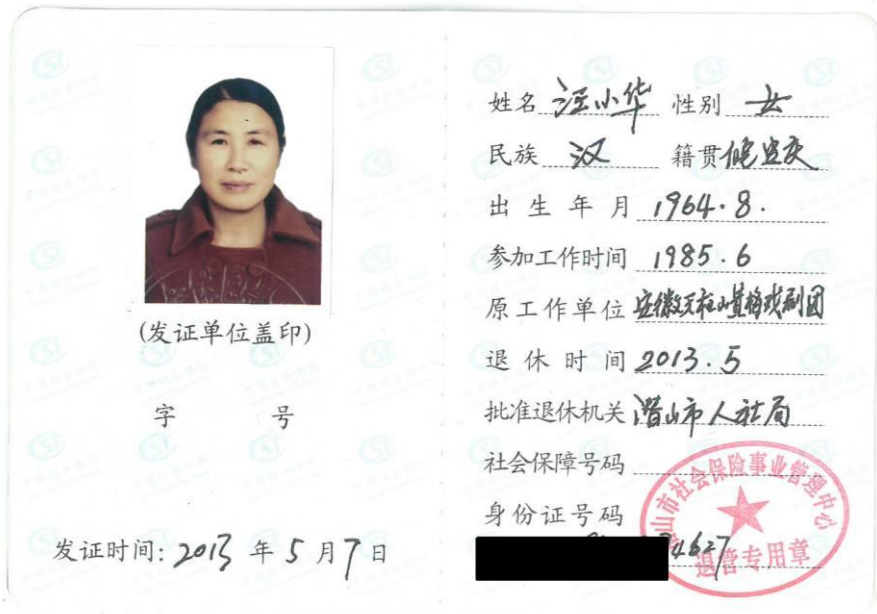 (发证单位盖印)
字 号
发证时间: 2013 年 5 月 7 日
姓名 汪小华 性别 女
民族 汉 籍贯 安庆
出生年月 1964.8.
参加工作时间 1985.6
原工作单位 安徽天柱山黄梅戏剧团
退休时间 2013.5
批准退休机关 潜山市人社局
社会保障号码
身份证号码
4627
山市社会保险事业管理中心
退管专用章